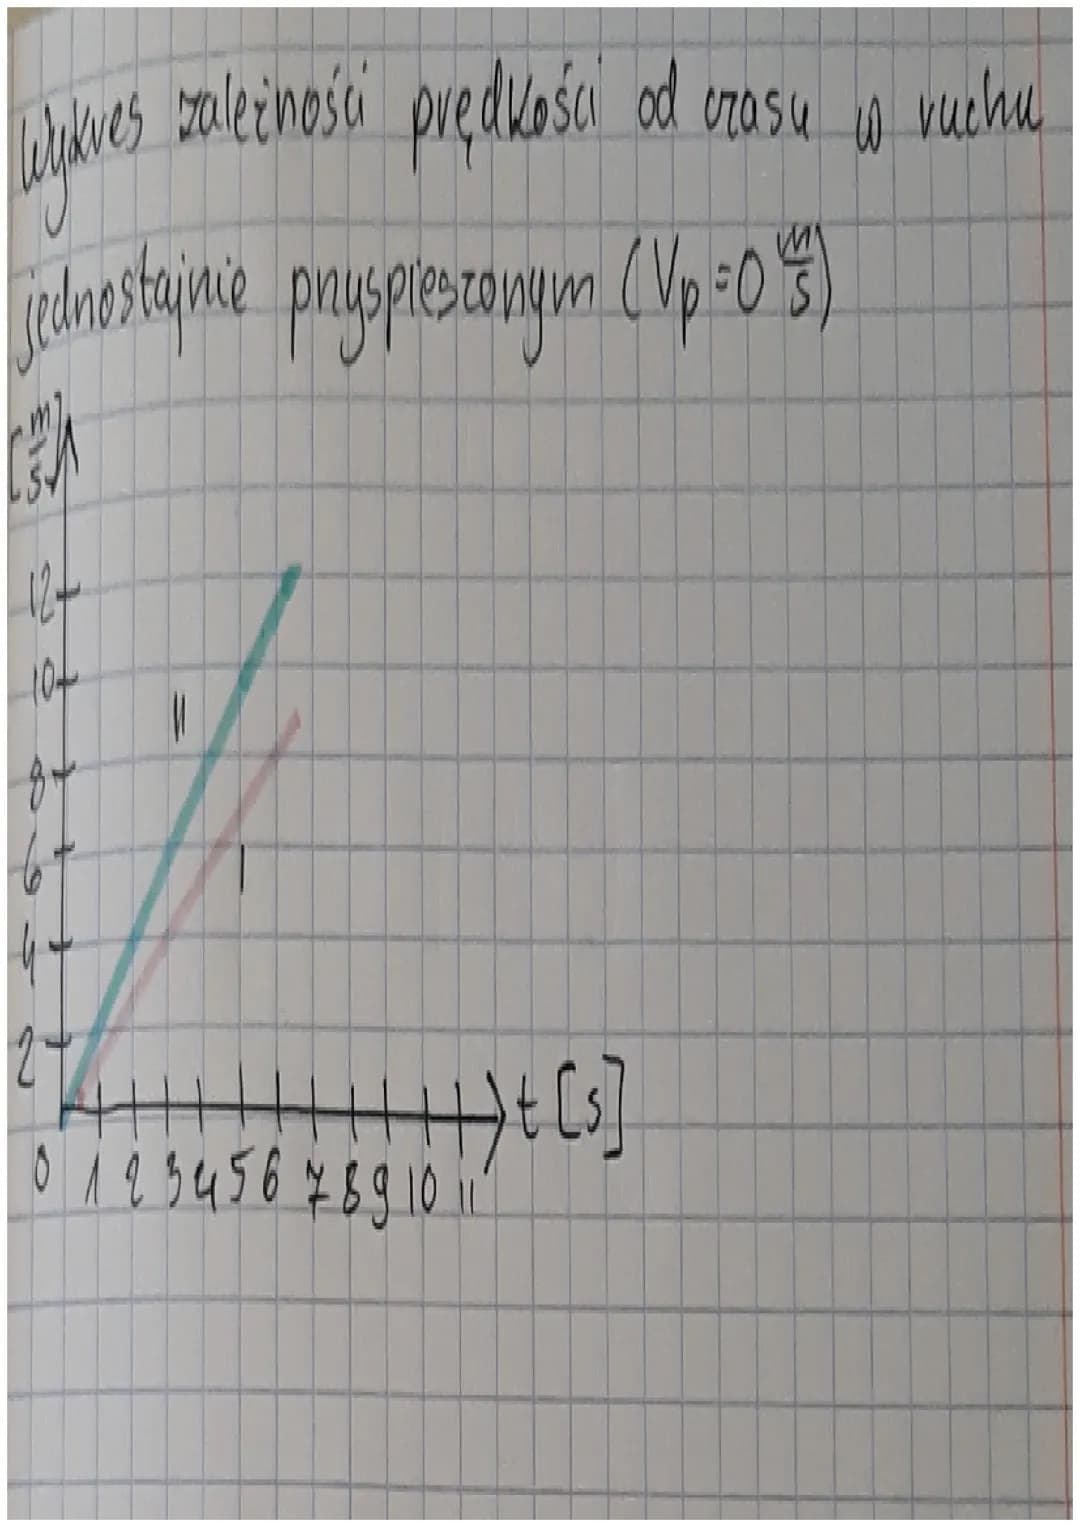 Wykres zależności prędkości od czasu w ruchu
jednostajnie przyspieszonym (Vp=0 m/s)
[m/s]
12
10
8
6
4
2
II
I
t [s]
0 1 2 3 4 5 6 7 8 9 10 11